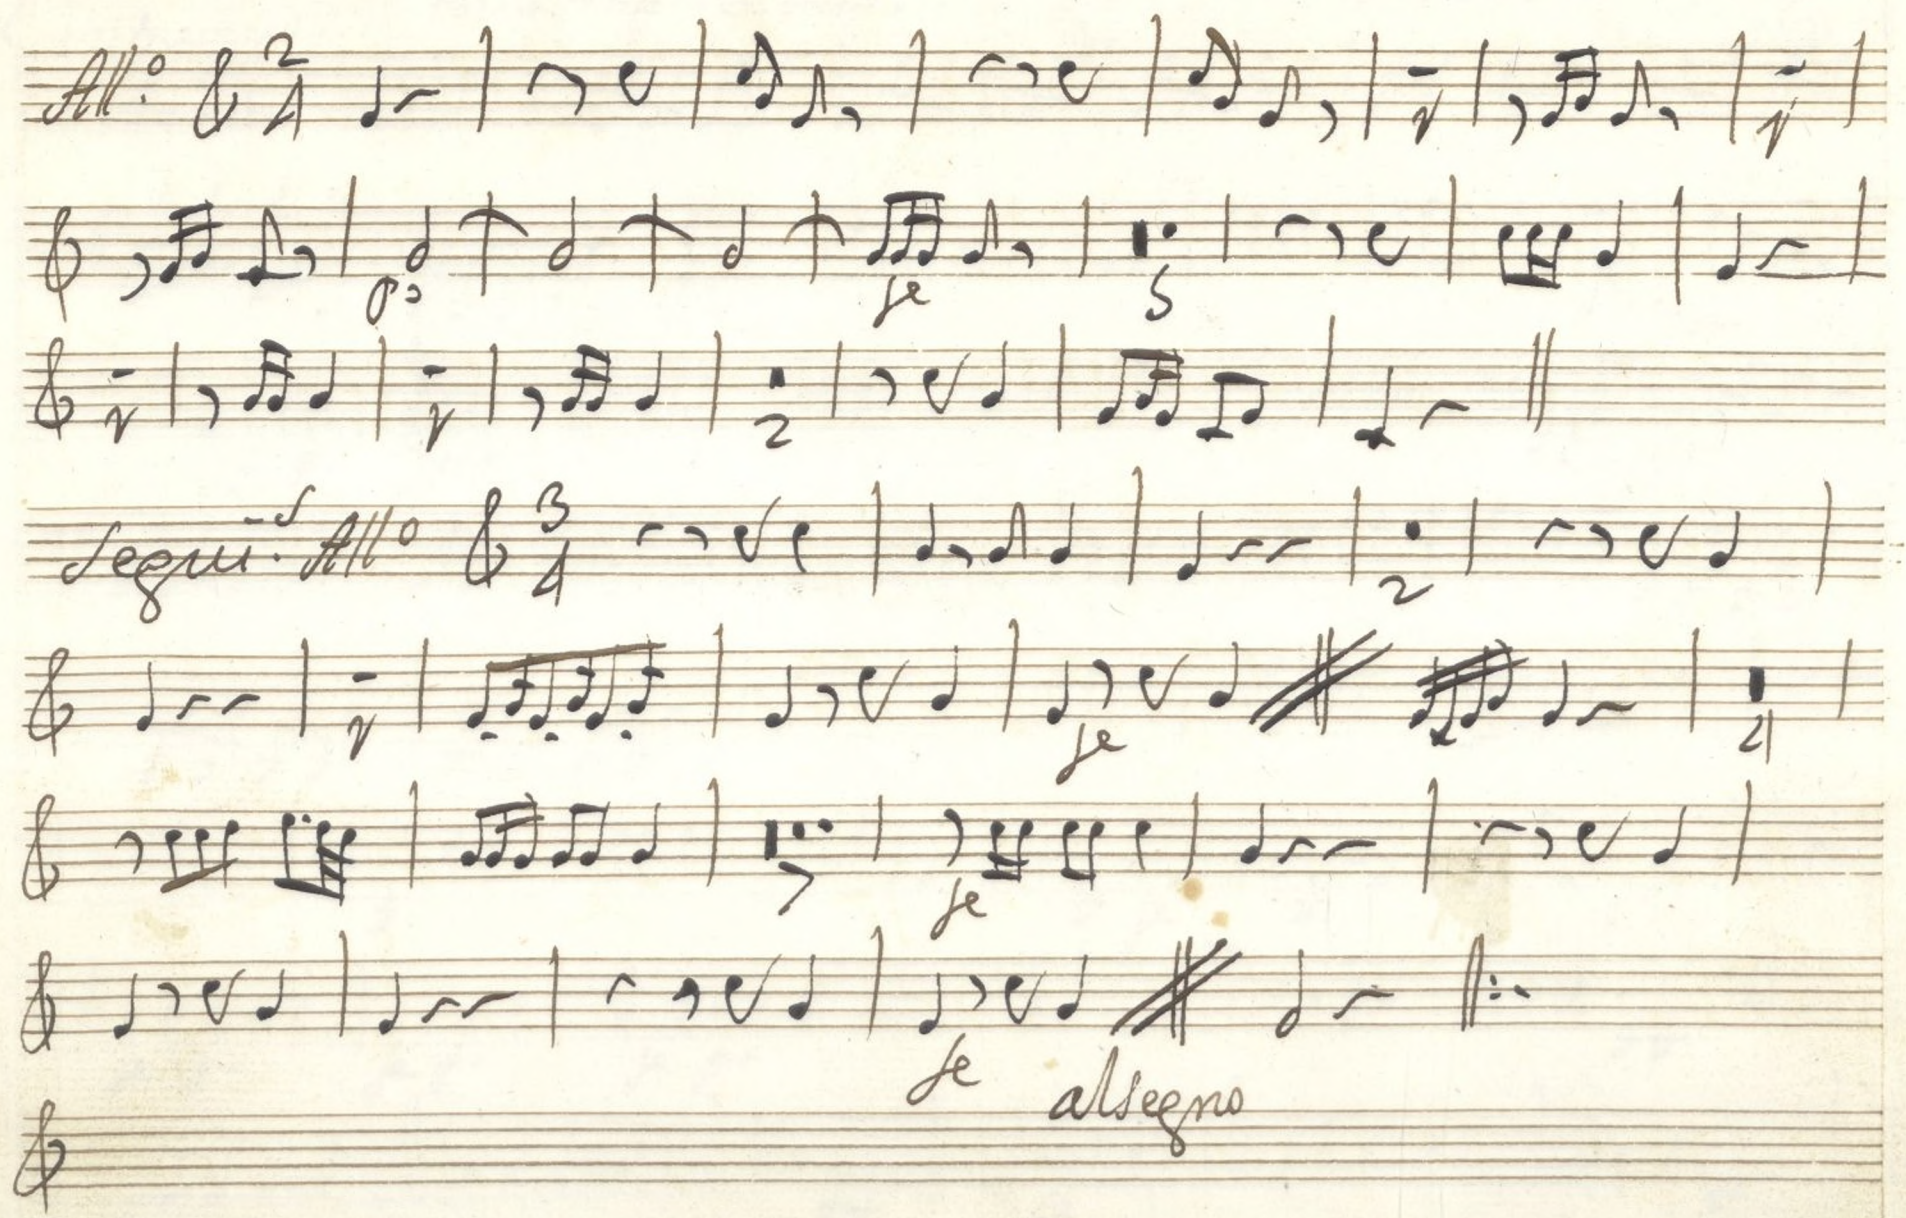 All.º 2 4 1 1
pº fe 5
1 1 2
Segui.s Allº 3 4 2
1 fe 4
7 fe
fe alsegno